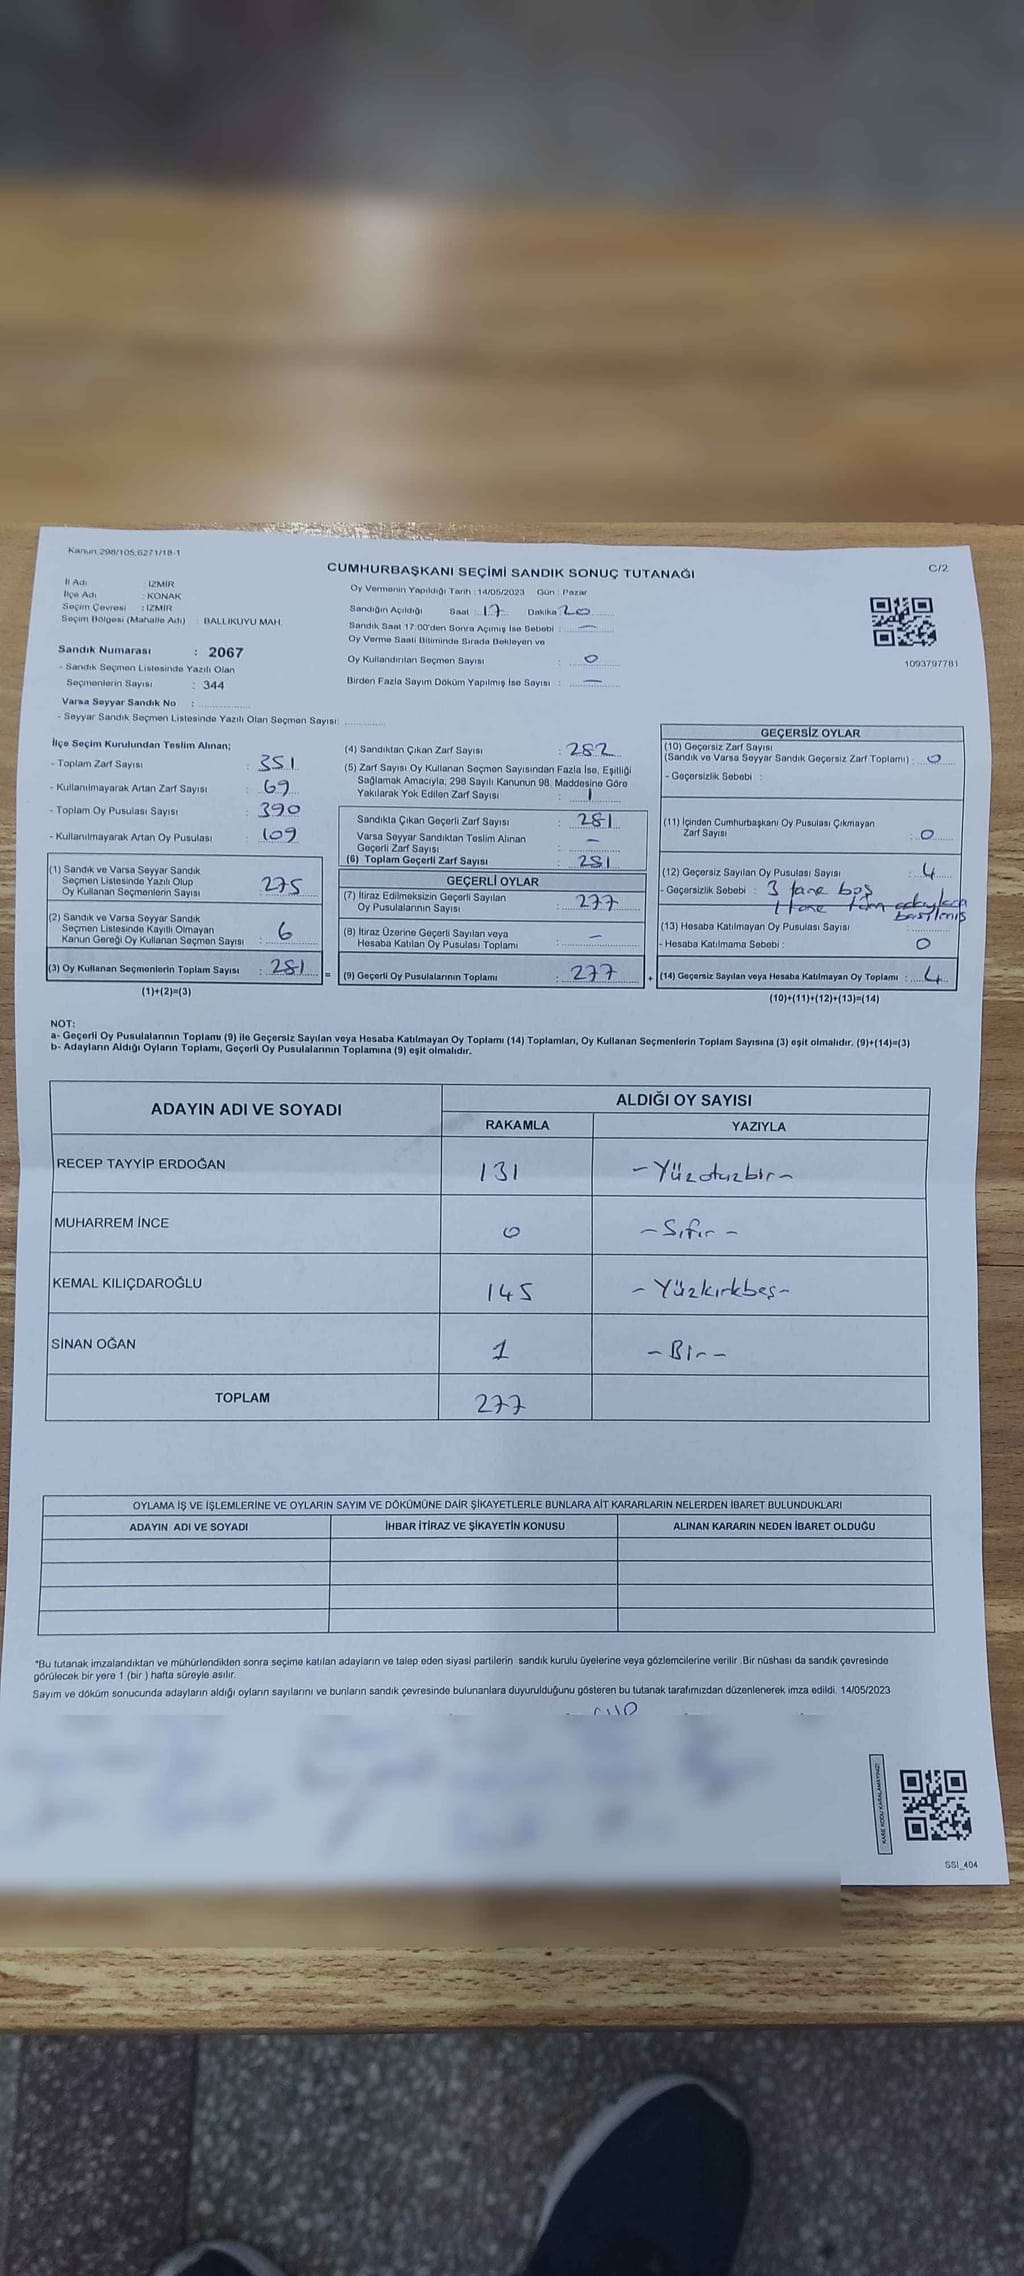 Kanun;298/105;6271/18-1
C/2
CUMHURBAŞKANI SEÇİMİ SANDIK SONUÇ TUTANAĞI
İl Adı : İZMİR
İlçe Adı : KONAK
Seçim Çevresi : İZMİR
Seçim Bölgesi (Mahalle Adı) : BALLIKUYU MAH.
Sandık Numarası : 2067
- Sandık Seçmen Listesinde Yazılı Olan
Seçmenlerin Sayısı : 344
Varsa Seyyar Sandık No :
- Seyyar Sandık Seçmen Listesinde Yazılı Olan Seçmen Sayısı:
Oy Vermenin Yapıldığı Tarih : 14/05/2023 Gün : Pazar
Sandığın Açıldığı Saat : 17 Dakika 20
Sandık Saat 17:00'den Sonra Açılmış İse Sebebi : —
Oy Verme Saati Bitiminde Sırada Bekleyen ve
Oy Kullandırılan Seçmen Sayısı : 0
Birden Fazla Sayım Döküm Yapılmış İse Sayısı : —
1093797761
İlçe Seçim Kurulundan Teslim Alınan;
- Toplam Zarf Sayısı : 351
- Kullanılmayarak Artan Zarf Sayısı : 69
- Toplam Oy Pusulası Sayısı : 390
- Kullanılmayarak Artan Oy Pusulası : 109
(1) Sandık ve Varsa Seyyar Sandık
Seçmen Listesinde Yazılı Olup
Oy Kullanan Seçmenlerin Sayısı : 275
(2) Sandık ve Varsa Seyyar Sandık
Seçmen Listesinde Kayıtlı Olmayan
Kanun Gereği Oy Kullanan Seçmen Sayısı : 6
(3) Oy Kullanan Seçmenlerin Toplam Sayısı : 281
(1)+(2)=(3)
(4) Sandıktan Çıkan Zarf Sayısı : 282
(5) Zarf Sayısı Oy Kullanan Seçmen Sayısından Fazla İse, Eşitliği
Sağlamak Amacıyla; 298 Sayılı Kanunun 98. Maddesine Göre
Yakılarak Yok Edilen Zarf Sayısı : 1
Sandıkta Çıkan Geçerli Zarf Sayısı : 281
Varsa Seyyar Sandıktan Teslim Alınan
Geçerli Zarf Sayısı : —
(6) Toplam Geçerli Zarf Sayısı : 281
GEÇERLİ OYLAR
(7) İtiraz Edilmeksizin Geçerli Sayılan
Oy Pusulalarının Sayısı : 277
(8) İtiraz Üzerine Geçerli Sayılan veya
Hesaba Katılan Oy Pusulası Toplamı : —
= (9) Geçerli Oy Pusulalarının Toplamı : 277 +
GEÇERSİZ OYLAR
(10) Geçersiz Zarf Sayısı
(Sandık ve Varsa Seyyar Sandık Geçersiz Zarf Toplamı) : 0
- Geçersizlik Sebebi :
(11) İçinden Cumhurbaşkanı Oy Pusulası Çıkmayan
Zarf Sayısı : 0
(12) Geçersiz Sayılan Oy Pusulası Sayısı : 4
- Geçersizlik Sebebi : 3 tane boş
1 tane tüm adaylara
basılmış
(13) Hesaba Katılmayan Oy Pusulası Sayısı
- Hesaba Katılmama Sebebi : 0
(14) Geçersiz Sayılan veya Hesaba Katılmayan Oy Toplamı : 4
(10)+(11)+(12)+(13)=(14)
NOT:
a- Geçerli Oy Pusulalarının Toplamı (9) ile Geçersiz Sayılan veya Hesaba Katılmayan Oy Toplamı (14) Toplamları, Oy Kullanan Seçmenlerin Toplam Sayısına (3) eşit olmalıdır. (9)+(14)=(3)
b- Adayların Aldığı Oyların Toplamı, Geçerli Oy Pusulalarının Toplamına (9) eşit olmalıdır.
ADAYIN ADI VE SOYADI
ALDIĞI OY SAYISI
RAKAMLA YAZIYLA
RECEP TAYYİP ERDOĞAN 131 - Yüzotuzbir -
MUHARREM İNCE 0 - Sıfır -
KEMAL KILIÇDAROĞLU 145 - Yüzkırkbeş -
SİNAN OĞAN 1 - Bir -
TOPLAM 277
OYLAMA İŞ VE İŞLEMLERİNE VE OYLARIN SAYIM VE DÖKÜMÜNE DAİR ŞİKAYETLERLE BUNLARA AİT KARARLARIN NELERDEN İBARET BULUNDUKLARI
ADAYIN ADI VE SOYADI İHBAR İTİRAZ VE ŞİKAYETİN KONUSU ALINAN KARARIN NEDEN İBARET OLDUĞU
*Bu tutanak imzalandıktan ve mühürlendikten sonra seçime katılan adayların ve talep eden siyasi partilerin sandık kurulu üyelerine veya gözlemcilerine verilir .Bir nüshası da sandık çevresinde
görülecek bir yere 1 (bir ) hafta süreyle asılır.
Sayım ve döküm sonucunda adayların aldığı oyların sayılarını ve bunların sandık çevresinde bulunanlara duyurulduğunu gösteren bu tutanak tarafımızdan düzenlenerek imza edildi. 14/05/2023
KARE KODU KARALAMAYINIZ!
SSI_404